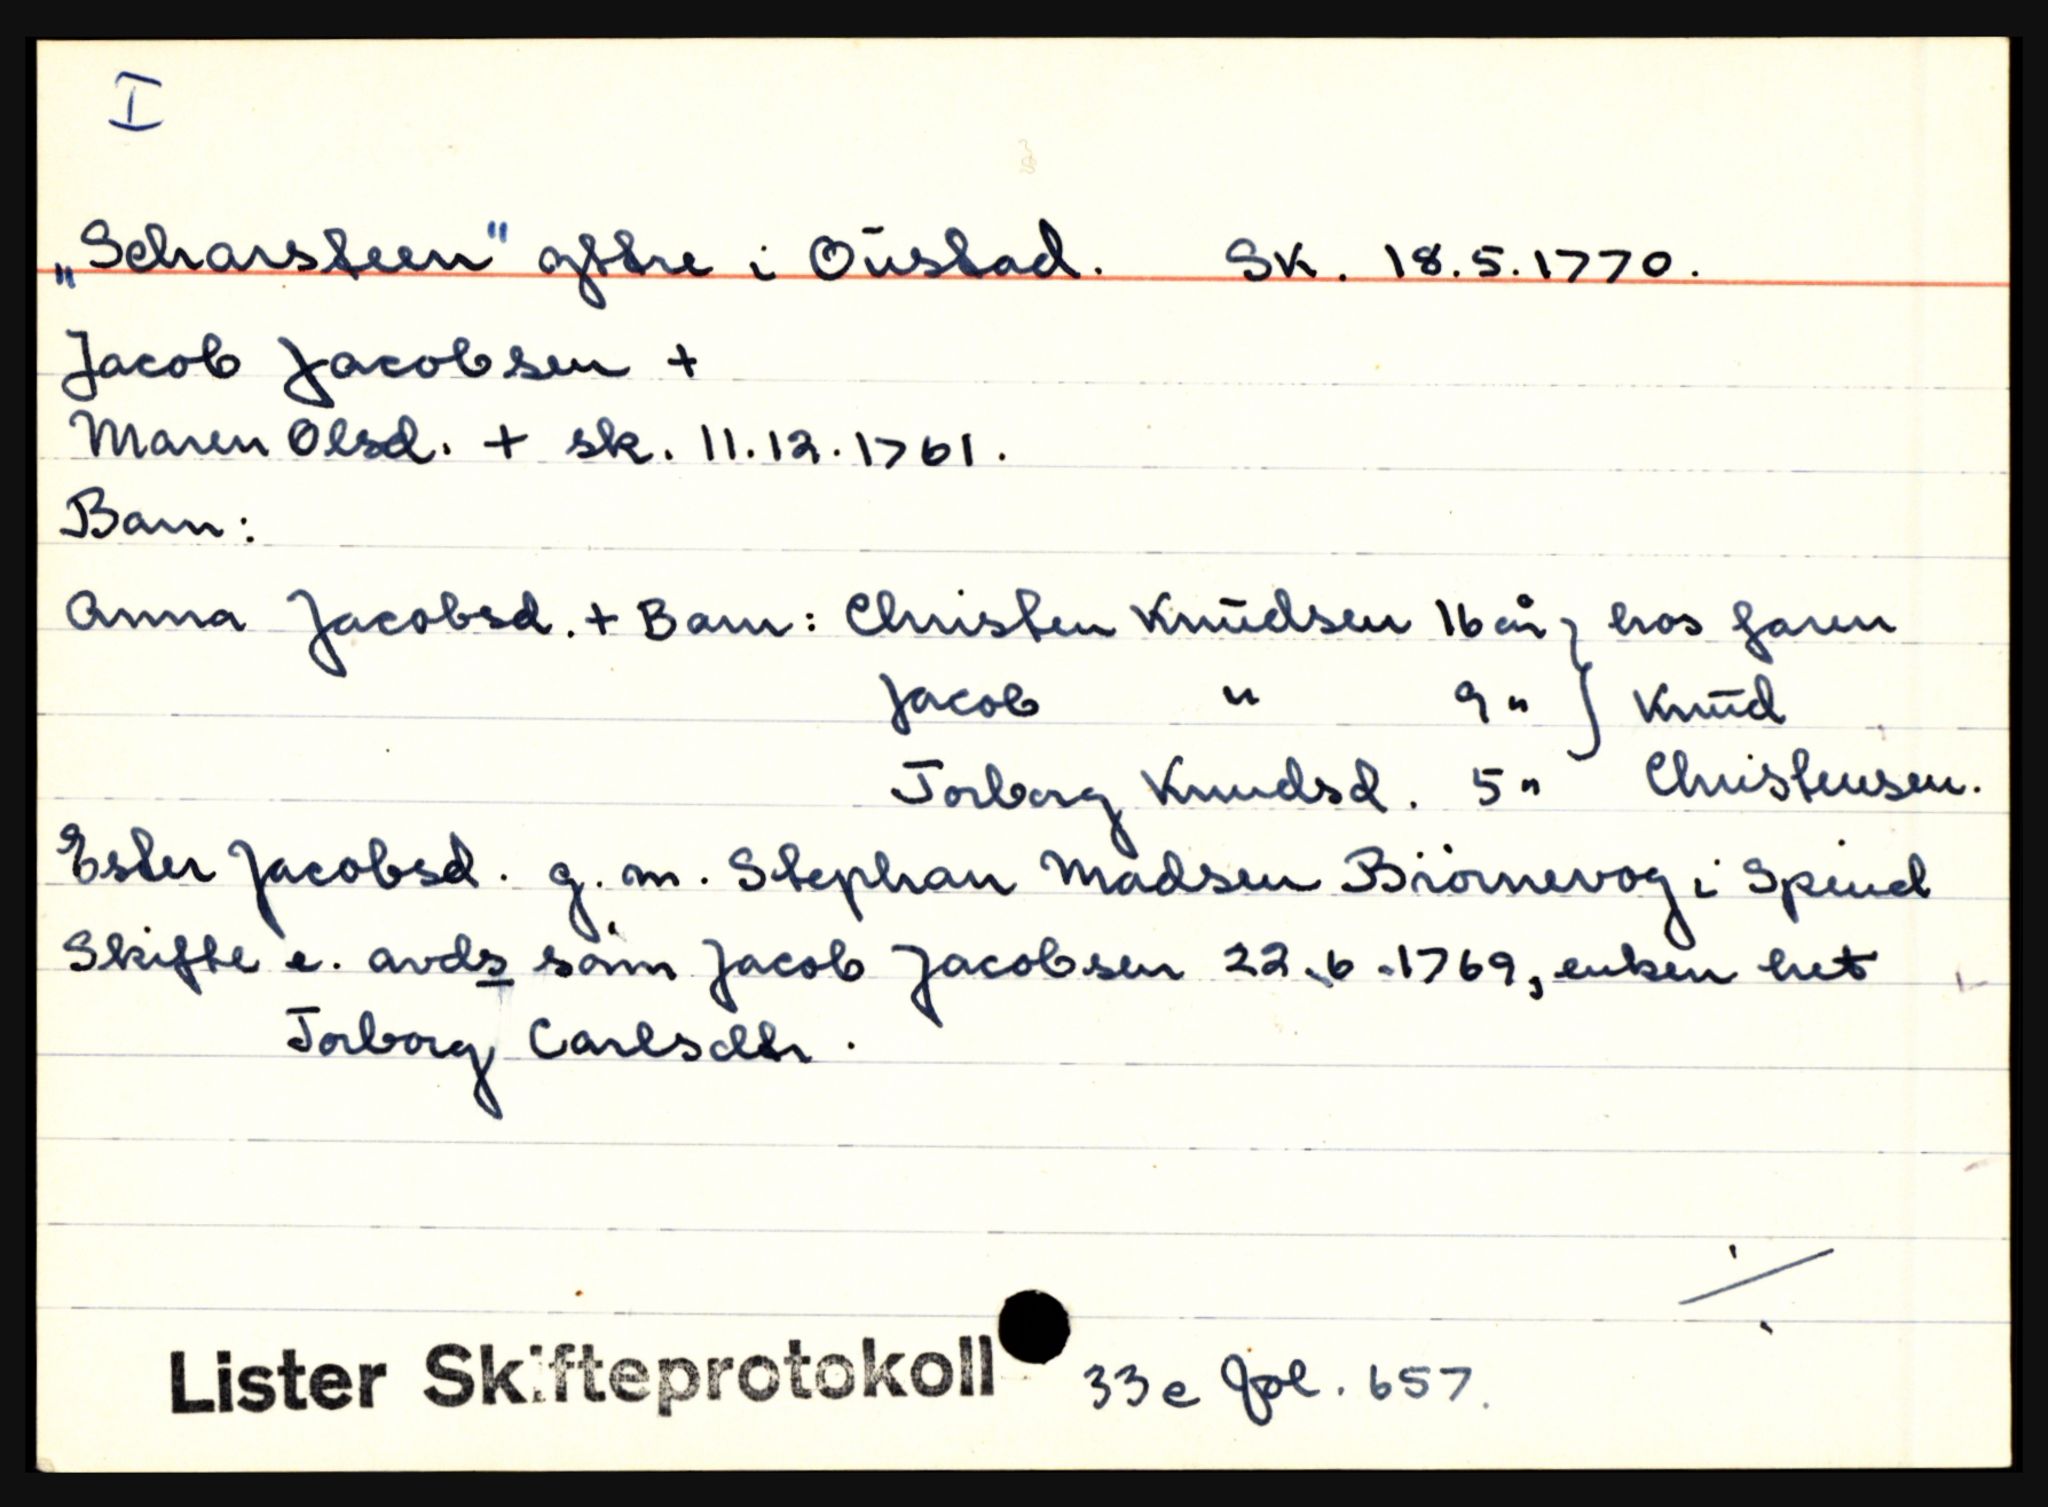 I
„Scharsteen" yttre i Oustad. Sk. 18.5.1770.
Jacob Jacobsen +
Maren Olsd. + sk. 11.12.1761.
Barn:
Anna Jacobsd. + Barn: Christen Knudsen 16 år } hos faren
Jacob " 9 " } Knud
Torborg Knudsd. 5 " Christensen.
Ester Jacobsd. g.m. Stephan Madsen Biörnevog i Spind
Skifte e. avds søn Jacob Jacobsen 22.6.1769, enken het
Torborg Carlsdtr.
Lister Skifteprotokoll 33e fol. 657.